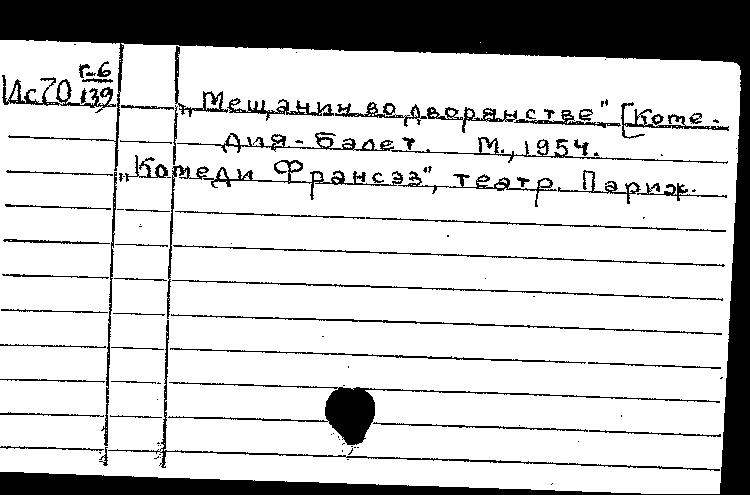 Ис70 г-6
139
„Мещанин во дворянстве" [Коме-
дия-балет. М., 1954.
„Комеди Франсэз", театр. Париж.